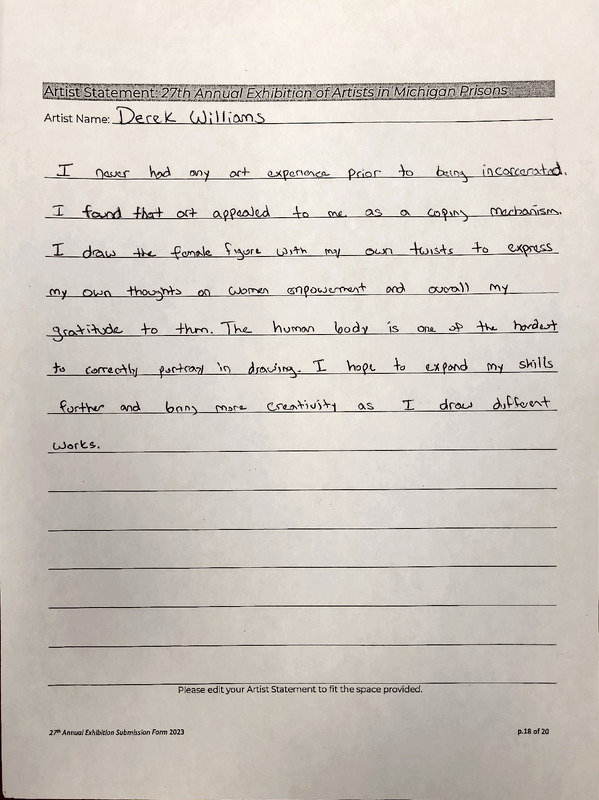 Artist Statement: 27th Annual Exhibition of Artists in Michigan Prisons
Artist Name: Derek Williams
I never had any art experience prior to being incarcerated.
I found that art appealed to me as a coping mechanism.
I draw the female figure with my own twists to express
my own thoughts on women empowerment and overall my
gratitude to them. The human body is one of the hardest
to correctly portray in drawing. I hope to expand my skills
further and bring more creativity as I draw different
works.
Please edit your Artist Statement to fit the space provided.
27th Annual Exhibition Submission Form 2023 p.18 of 20